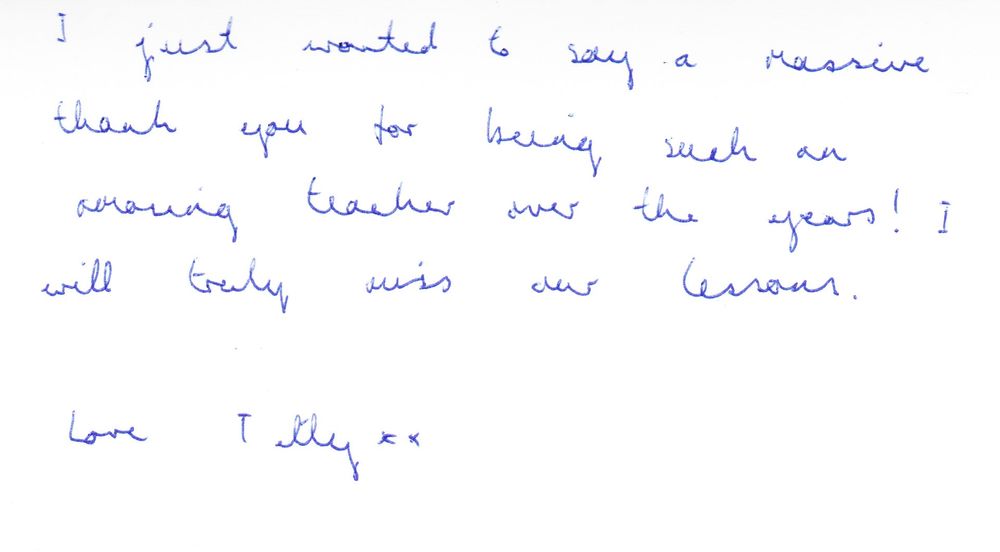 I just wanted to say a massive
thank you for being such an
amazing teacher over the years! I
will truly miss our lessons.
Love Tilly xx